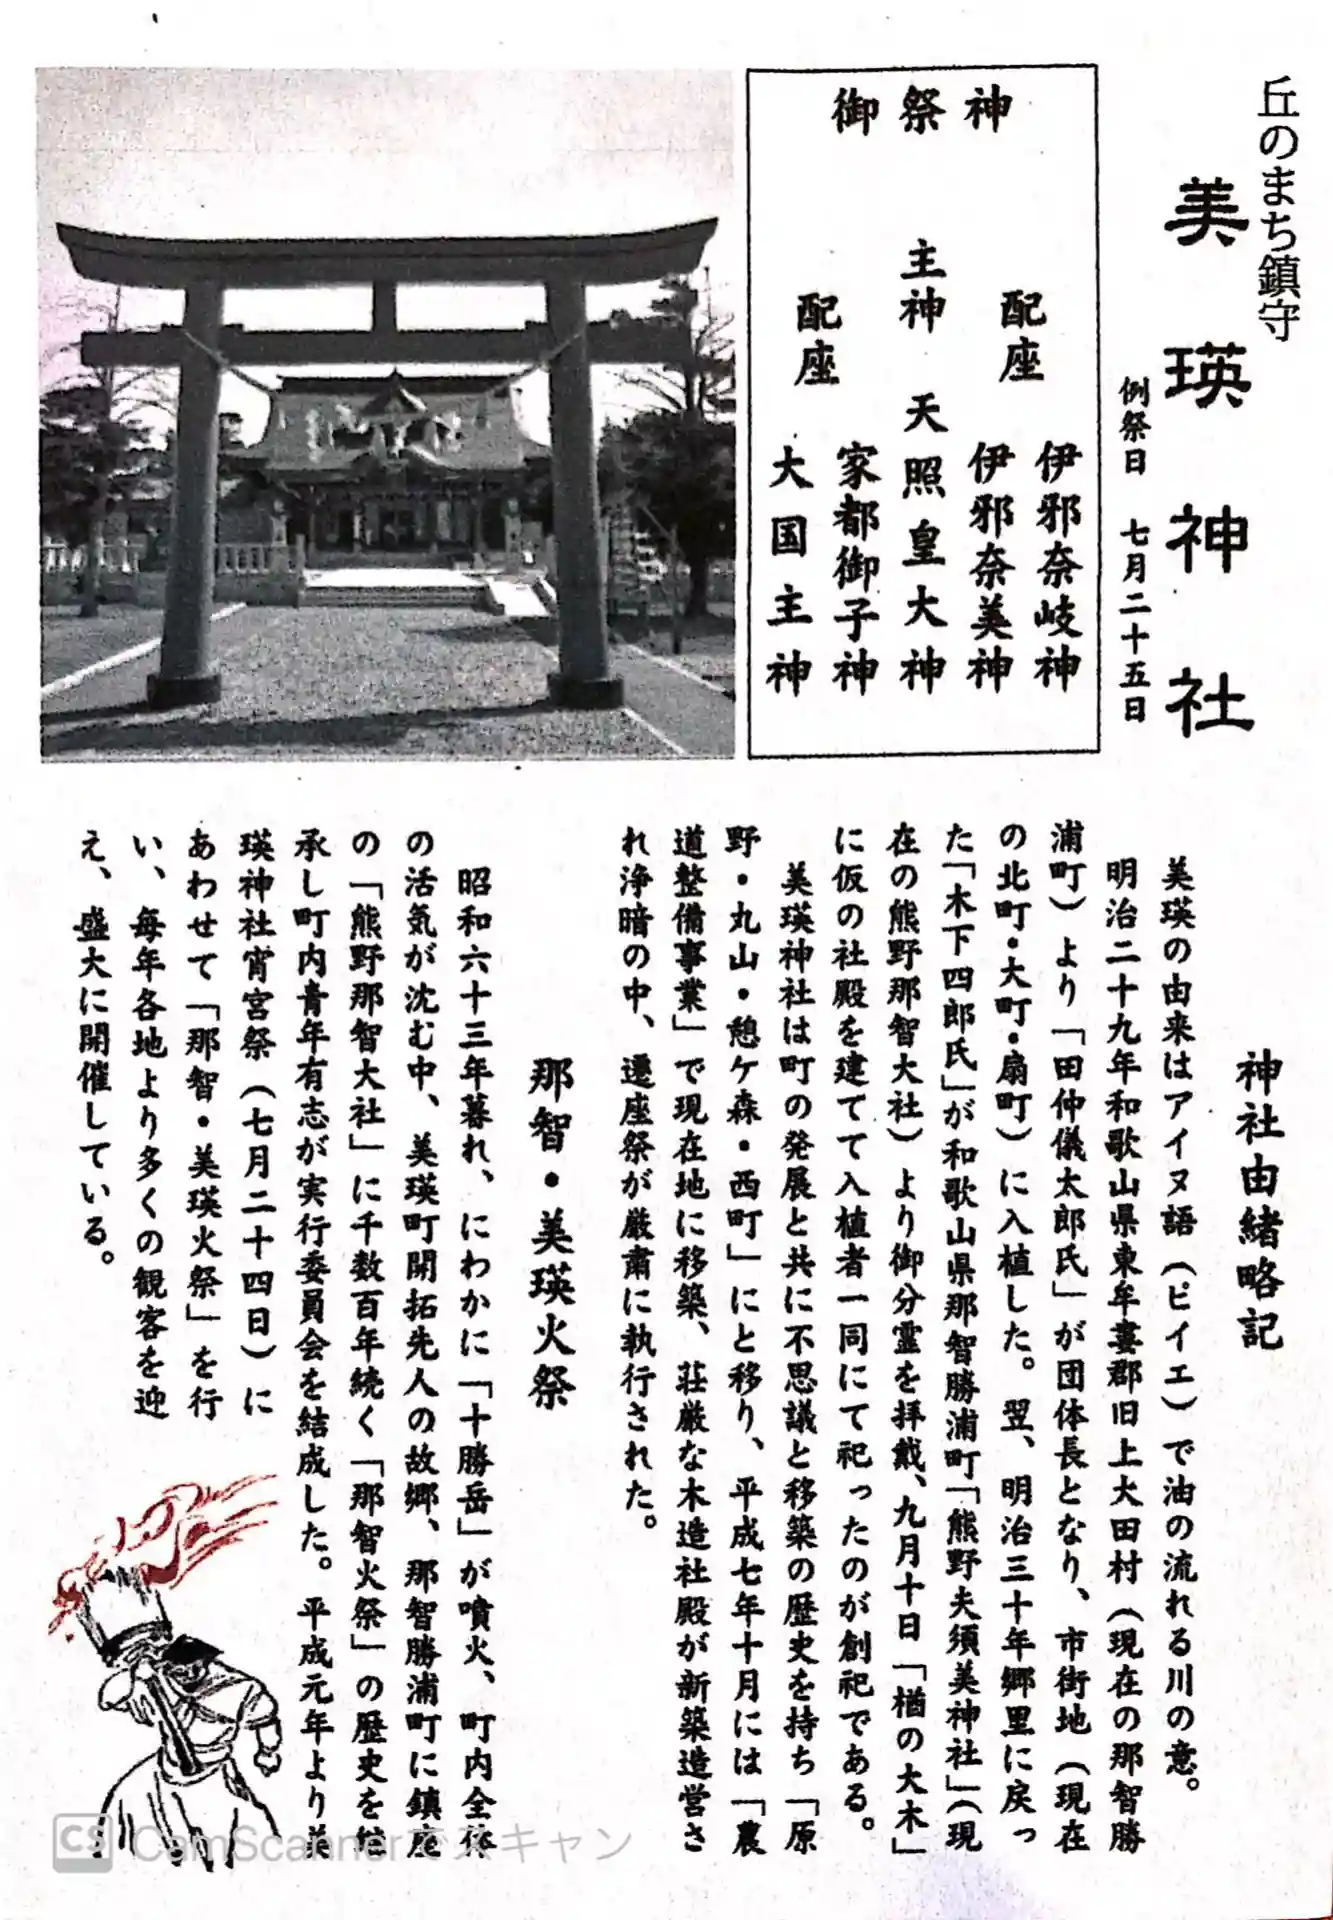 丘のまち鎮守
美瑛神社
例祭日 七月二十五日
御祭神
配座 伊邪奈岐神
伊邪奈美神
主神 天照皇大神
配座 家都御子神
大国主神
神社由緒略記
美瑛の由来はアイヌ語(ピイエ)で油の流れる川の意。
明治二十九年和歌山県東牟婁郡旧上大田村(現在の那智勝
浦町)より「田仲儀太郎氏」が団体長となり、市街地(現在
の北町・大町・扇町)に入植した。翌、明治三十年郷里に戻っ
た「木下四郎氏」が和歌山県那智勝浦町「熊野夫須美神社」(現
在の熊野那智大社)より御分霊を拝戴、九月十日「楢の大木」
に仮の社殿を建てて入植者一同にて祀ったのが創祀である。
美瑛神社は町の発展と共に不思議と移築の歴史を持ち「原
野・丸山・憩ケ森・西町」にと移り、平成七年十月には「農
道整備事業」で現在地に移築、荘厳な木造社殿が新築造営さ
れ浄暗の中、遷座祭が厳粛に執行された。
那智・美瑛火祭
昭和六十三年暮れ、にわかに「十勝岳」が噴火、町内全体
の活気が沈む中、美瑛町開拓先人の故郷、那智勝浦町に鎮座
の「熊野那智大社」に千数百年続く「那智火祭」の歴史を継
承し町内青年有志が実行委員会を結成した。平成元年より美
瑛神社宵宮祭(七月二十四日)に
あわせて「那智・美瑛火祭」を行
い、毎年各地より多くの観客を迎
え、盛大に開催している。
CS CamScannerでスキャン